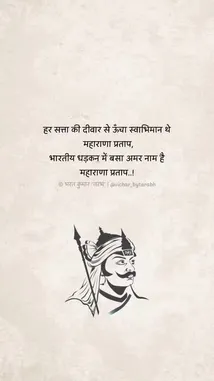 हर सत्ता की दीवार से ऊँचा स्वाभिमान थे
महाराणा प्रताप,
भारतीय धड़कन में बसा अमर नाम है
महाराणा प्रताप..!